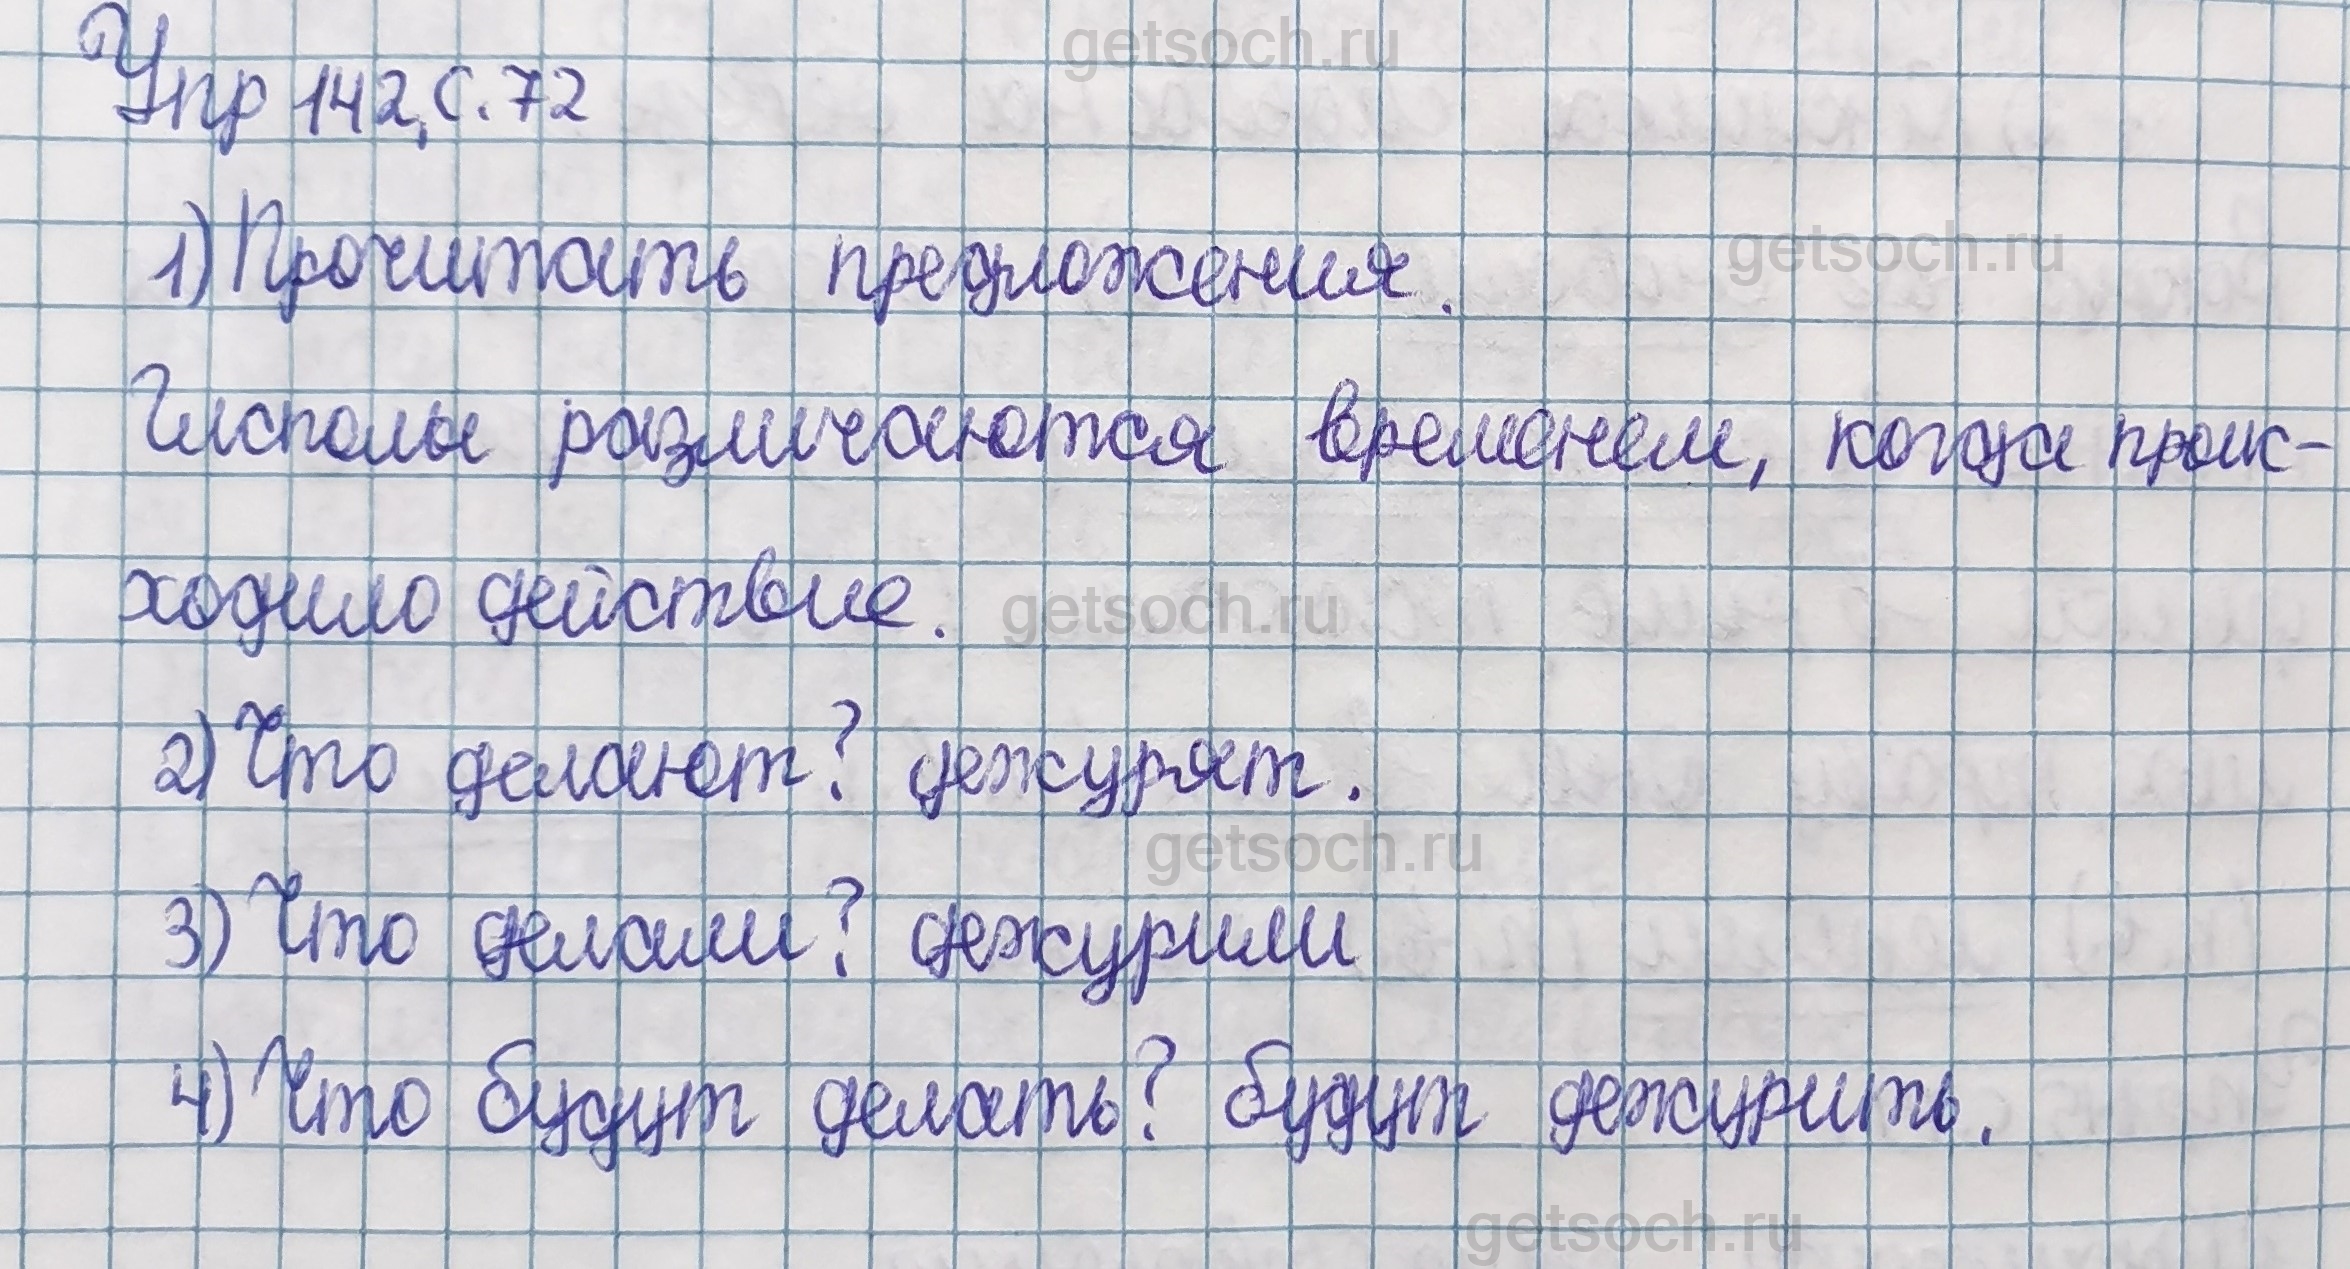 getsoch.ru
Упр 142, с. 72
1) Прочитать предложения.
getsoch.ru
различаются временем, когда проис-
ходило действие.
getsoch.ru
2) Что делают? дежурят.
getsoch.ru
3) Что делали? дежурили
4) Что будут делать? будут дежурить.
getsoch.ru